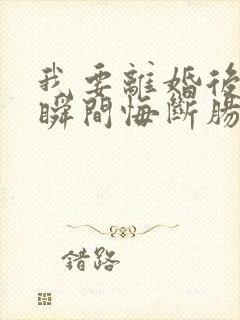 我要離婚後
瞬間悔斷腸
錯路